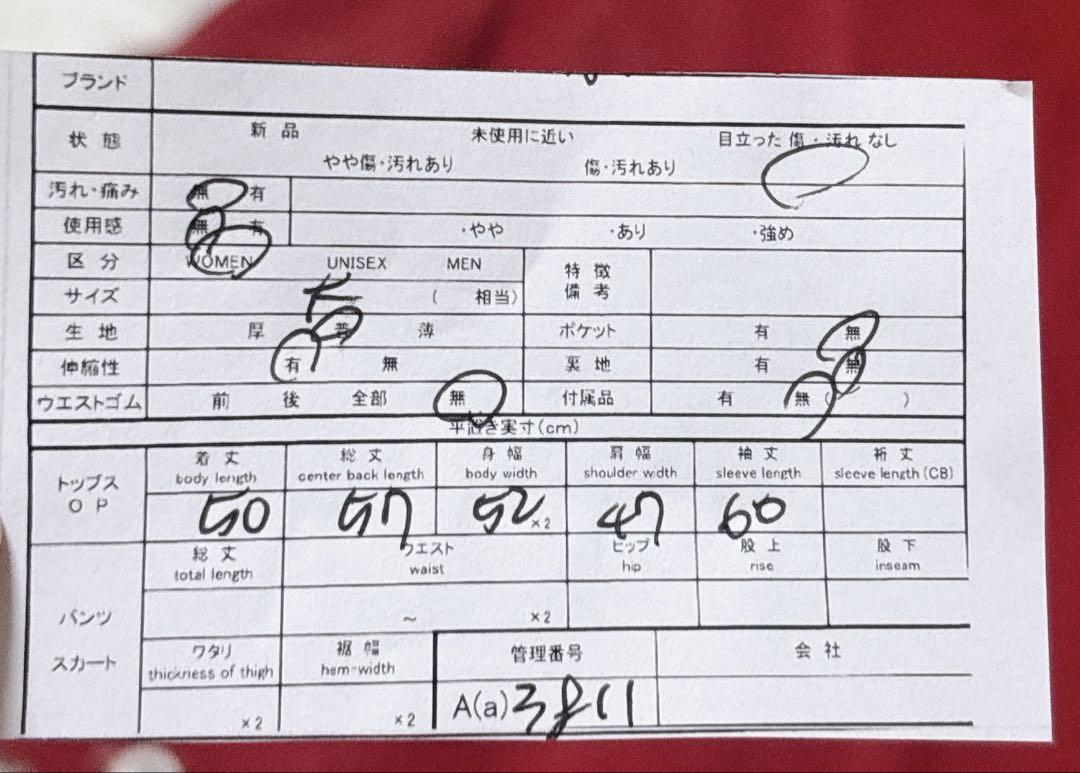 ブランド
状態 新品 未使用に近い 目立った傷・汚れなし
やや傷・汚れあり 傷・汚れあり
汚れ・痛み 無 有
使用感 無 有 ・やや ・あり ・強め
区分 WOMEN UNISEX MEN 特徴
備考
サイズ ( 相当)
生地 厚 普 薄 ポケット 有 無
伸縮性 有 無 裏地 有 無
ウエストゴム 前 後 全部 無 付属品 有 無 ( )
平置き実寸(cm)
着丈 総丈 身幅 肩幅 袖丈 裄丈
body length center back length body width shoulder width sleeve length sleeve length (CB)
トップス
OP
50 57 52 ×2 47 60
総丈 ウエスト ヒップ 股上 股下
total length waist hip rise inseam
パンツ ~ ×2
スカート
ワタリ 裾幅 管理番号 会社
thickness of thigh hem-width
×2 ×2 A(a)